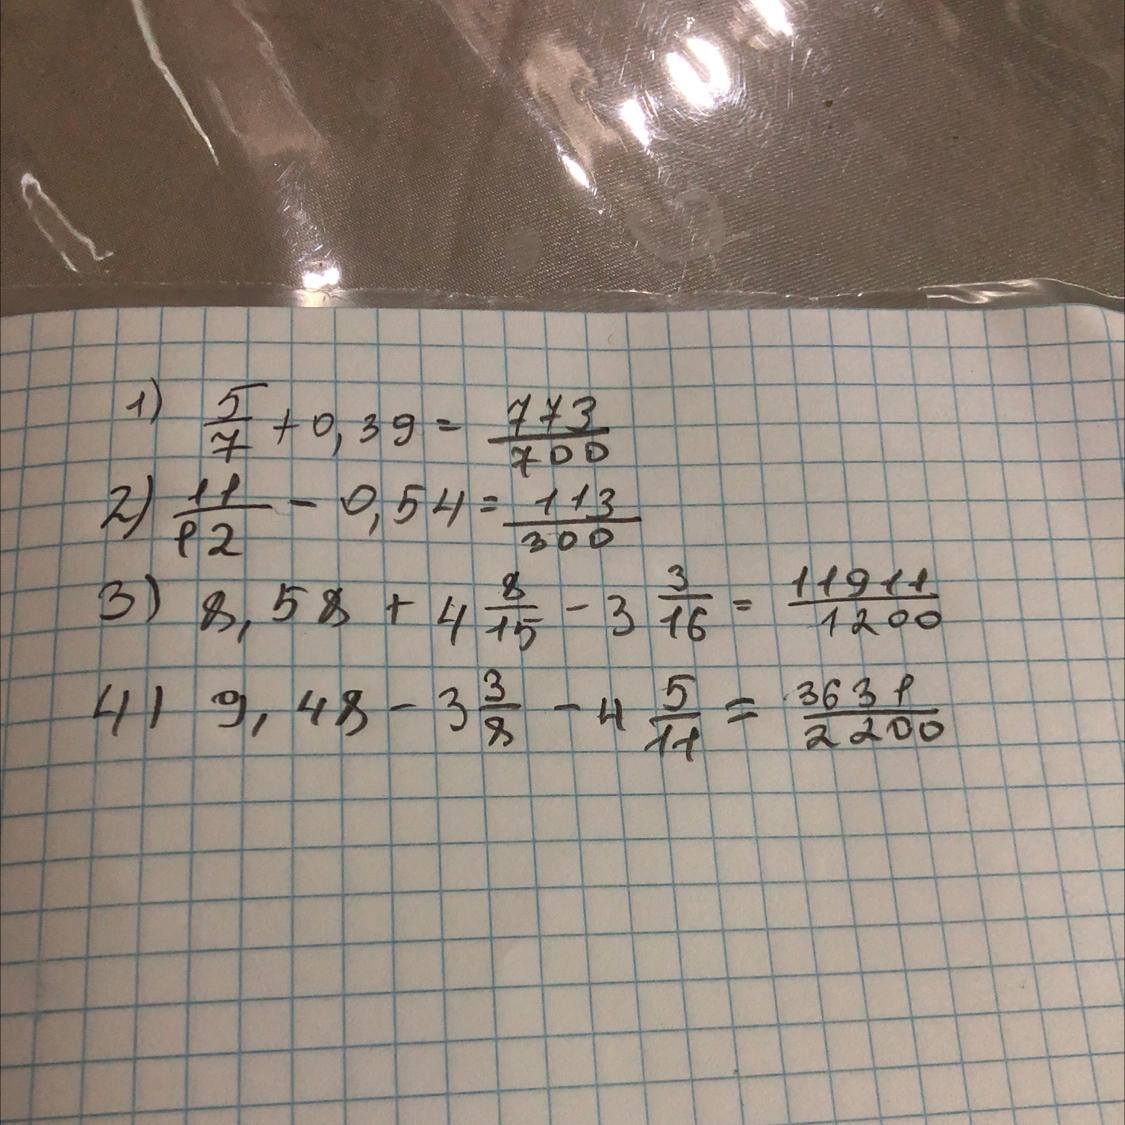 1) 5/7 + 0,39 = 773/700
2) 11/12 - 0,54 = 113/300
3) 8,58 + 4 8/15 - 3 3/16 = 11911/1200
4) 9,48 - 3 3/8 - 4 5/11 = 3631/2200